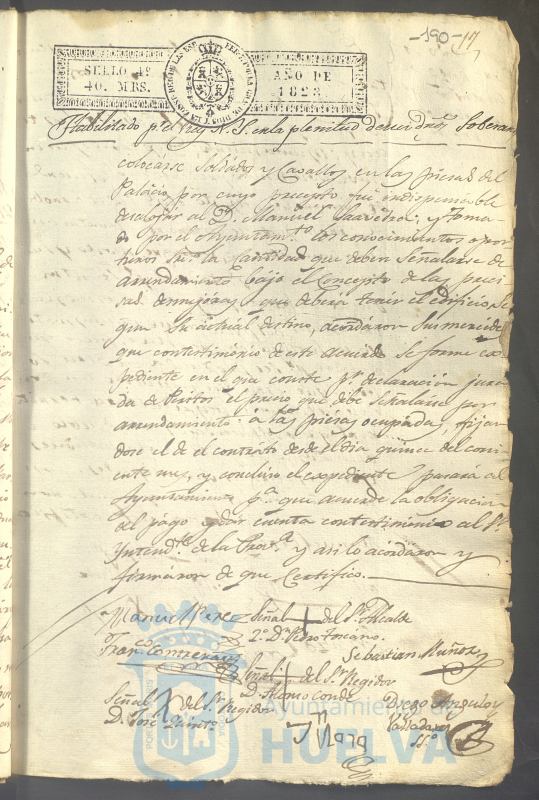 -190- 17
SELLO 4º
40. MRS.
AÑO DE
1823
Habilitado p.r el Rey N. S. en la plenitud de sus dros Soberan.
colocarse Soldados y Cavallos en las piesas del
Palacio, por cuyo precepto fue indispensable
desalojar al D. Manuel Saavedra, y toma
do por el Ayuntam.to los conocimientos opor
tunos sre. la cantidad que deben señalarse de
arrendamiento bajo el Concepto de las preci
sas mejoras que deberá tener el edificio, se
gun su actual destino, acordaron Sus mercedes
que con testimonio de este acuerdo se forme ex
pediente en el que conste p.r declaración jura
da de Peritos el precio que debe señalarse por
arrendamiento á las piesas ocupadas, fijan
dose el de el contrato desde el dia quince del corri
ente mes, y concluso el expediente pasará al
Ayuntamiento p.a que acuerde la obligacion
del pago y dar cuenta con testimonio al S.r
Intend.te de la Prov.a y asi lo acordaron y
firmaron de que Certifico.
Manuel Perez Señal + del S.r Alcalde
2º D.n Pedro
Fran.co Contreras Sebastian Muñoz
Señal + del S.r Regidor
D. Alonso Conde
Señal X del S.r Regidor
D. José Quinto
Diego Angulo y
Valladares
S.rio
Ayuntamiento de
HUELVA